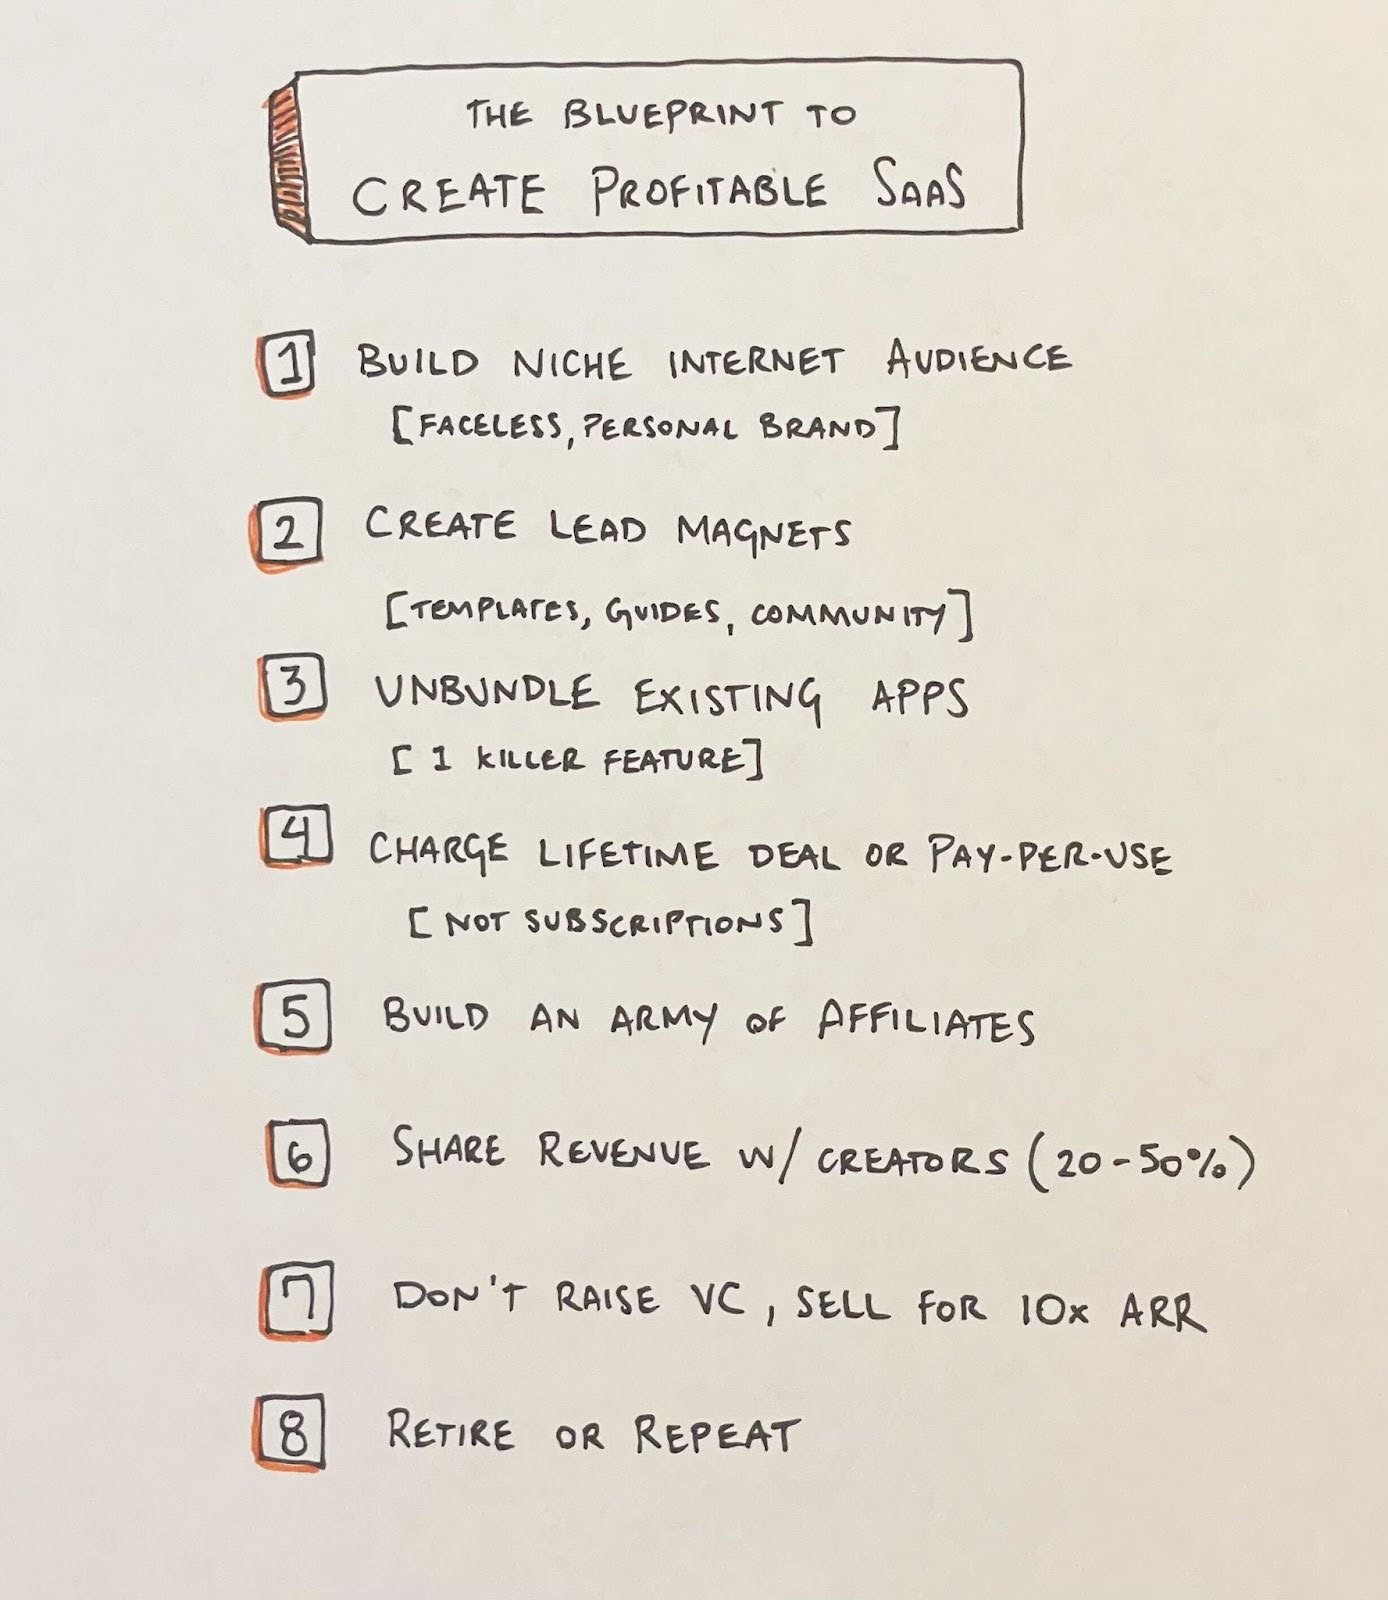 THE BLUEPRINT TO
CREATE PROFITABLE SAAS
1 BUILD NICHE INTERNET AUDIENCE
[FACELESS, PERSONAL BRAND]
2 CREATE LEAD MAGNETS
[TEMPLATES, GUIDES, COMMUNITY]
3 UNBUNDLE EXISTING APPS
[1 KILLER FEATURE]
4 CHARGE LIFETIME DEAL OR PAY-PER-USE
[NOT SUBSCRIPTIONS]
5 BUILD AN ARMY OF AFFILIATES
6 SHARE REVENUE W/ CREATORS (20-50%)
7 DON'T RAISE VC, SELL FOR 10x ARR
8 RETIRE OR REPEAT